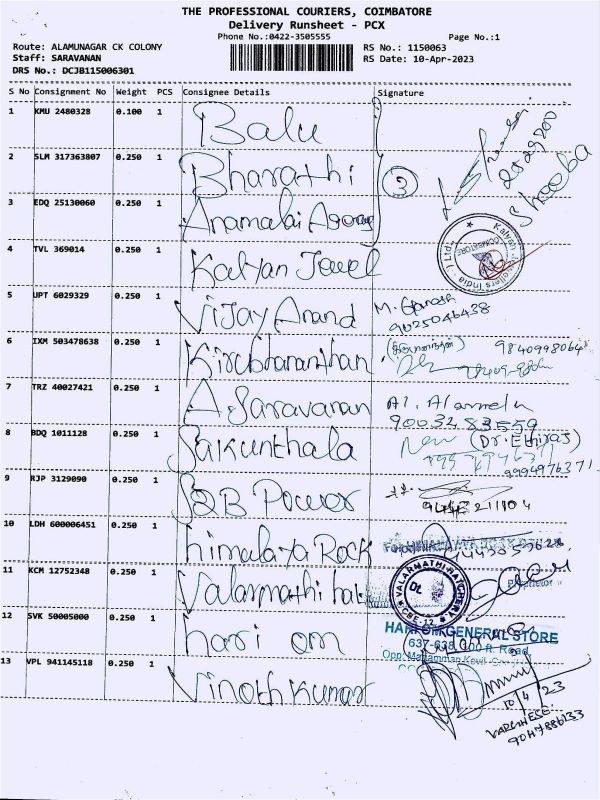 THE PROFESSIONAL COURIERS, COIMBATORE
Delivery Runsheet - PCX
Phone No.:0422-3505555 Page No.:1
Route: ALAMUNAGAR CK COLONY RS No.: 1150063
Staff: SARAVANAN RS Date: 10-Apr-2023
DRS No.: DCJB115006301
S No Consignment No Weight PCS Consignee Details Signature
1 KMU 2480328 0.100 1 Balu
2 SLM 317363807 0.250 1 Bharathi 3
Shooba
3 EDQ 25130060 0.250 1 Anamalai Agency
4 TVL 369014 0.250 1 Kalyan Jewel
5 UPT 6029329 0.250 1 Vijay Anand M. Ganesh
9025046438
6 IXM 503478638 0.250 1 Kirubhananthan 9840998064
7 TRZ 40027421 0.250 1 A. Saravanan Al. Alamelu
9003283559
8 BDQ 1011128 0.250 1 Sakunthala (Dr. Ethiraj)
9994976371
9 RJP 3129090 0.250 1 SQB Power
10 LDH 600006451 0.250 1 himalaya Rock
11 KCM 12752348 0.250 1 Valarmathi hat
Proprietor
12 SVK 50005000 0.250 1 hari om
HARI OM GENERAL STORE
637-638, 100 ft. Road,
Opp. Mariamman Kovil
13 VPL 941145118 0.250 1 Vinoth Kumar
10/4/23
VARGHESE
9047886133